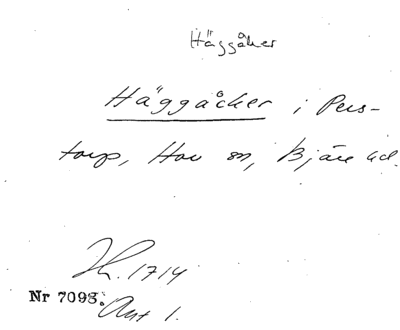 Häggåker
Häggåcker i Pers-
torp, Hov sn, Bjäre hd.
Jb. 1714
Nr 7093.
Ant 1.